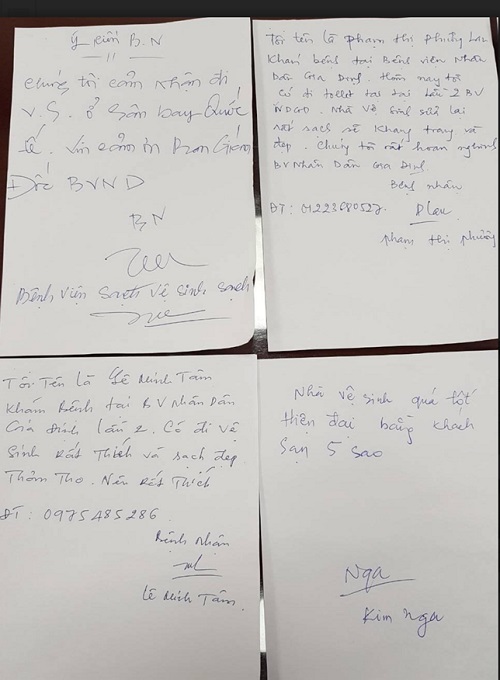 Ý kiến B.N
Chúng tôi cảm nhận đi
V.S. ở Sân bay Quốc
tế. Xin cảm ơn Ban Giám
Đốc BVND
BN
Bệnh viện sạch vệ sinh sạch
Tôi tên là Phạm thị Phường Lan
Khám bệnh tại Bệnh viện Nhân
Dân Gia Định. Hôm nay tôi
Có đi tollet tại lầu 2 BV
NDGĐ. Nhà Vệ Sinh sửa lại
rất sạch sẽ Khang trang và
đẹp. Chúng tôi rất hoan nghinh
BV Nhân Dân Gia Định.
Bệnh nhân
ĐT: 01223680527
PLan
phạm thị phường
Tôi Tên Là Lê Minh Tâm
Khám Bệnh tại BV Nhân Dân
Gia Định lần 2. Có đi vệ
Sinh Rất Thích và sạch đẹp
Thơm Tho. Nên Rất Thích
ĐT: 0975485286
Bệnh Nhận
Lê Minh Tâm
Nhà vệ sinh quá tốt
Hiện đại bằng khách
sạn 5 sao
Nga
Kim Nga